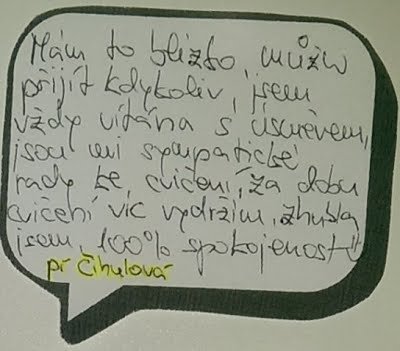 Mám to blízko, můžu
přijít kdykoliv, jsem
vždy vítána s úsměvem,
jsou mi sympatické
rady ke cvičení, za dobu
cvičení víc vydržím, zhubla
jsem, 100% spokojenost!!
pí Čihulová